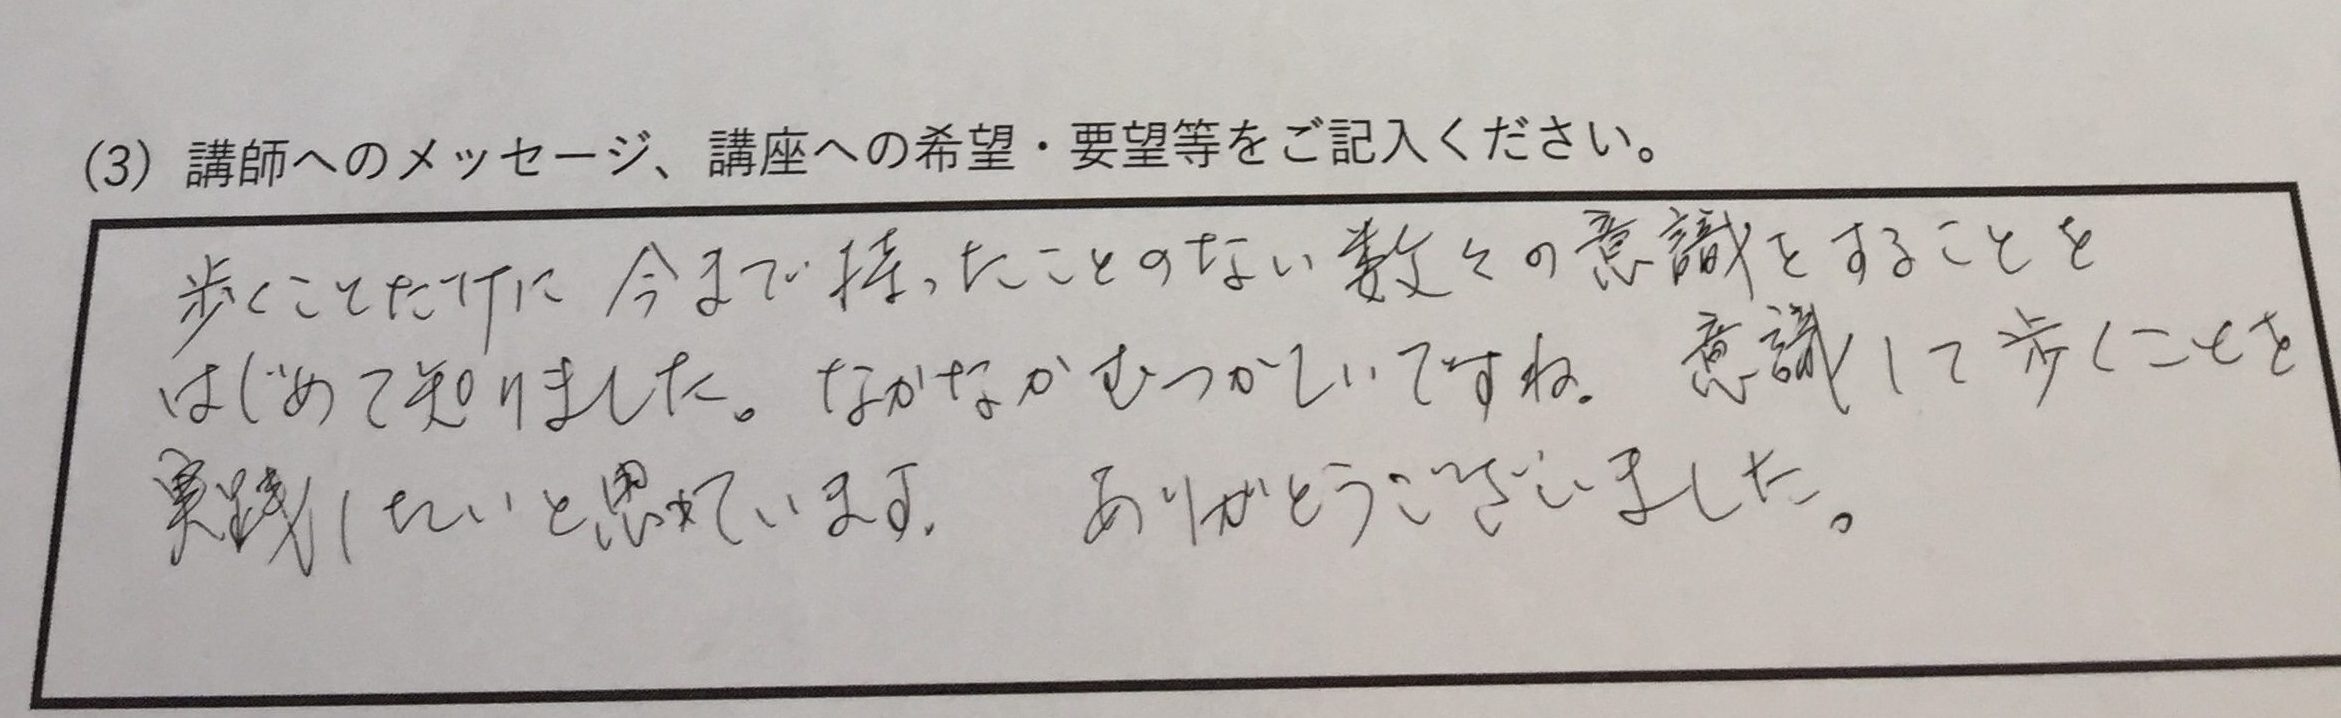 (3) 講師へのメッセージ、講座への希望・要望等をご記入ください。
歩くことだけに 今まで持ったことのない数々の意識をすることを
はじめて知りました。なかなかむつかしいですね。意識して歩くことを
実践したいと思っています。 ありがとうございました。